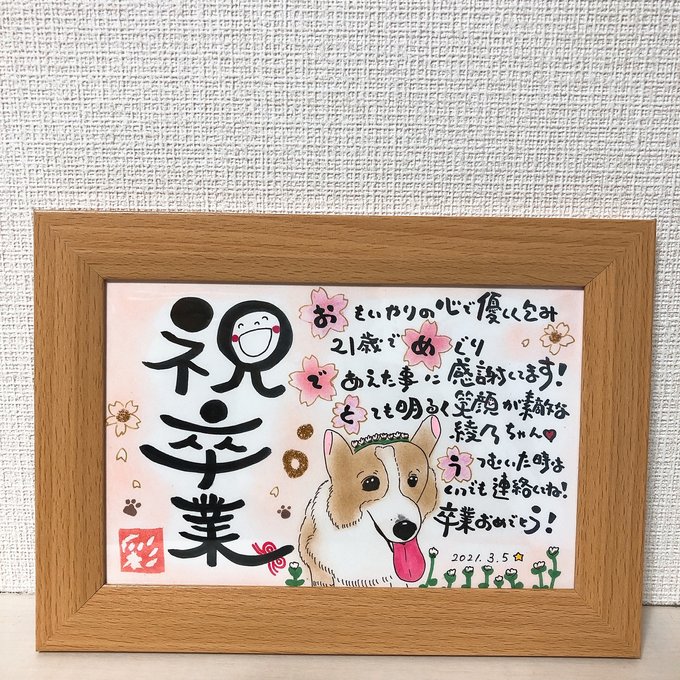 祝卒業
おもいやりの心で優しく包み
21歳でめぐり
であえた事に感謝います!
とても明るく笑顔が素敵な
綾乃ちゃん
うつむいた時は
くつでも連絡してね!
卒業おめでとう!
2021.3.5
彩